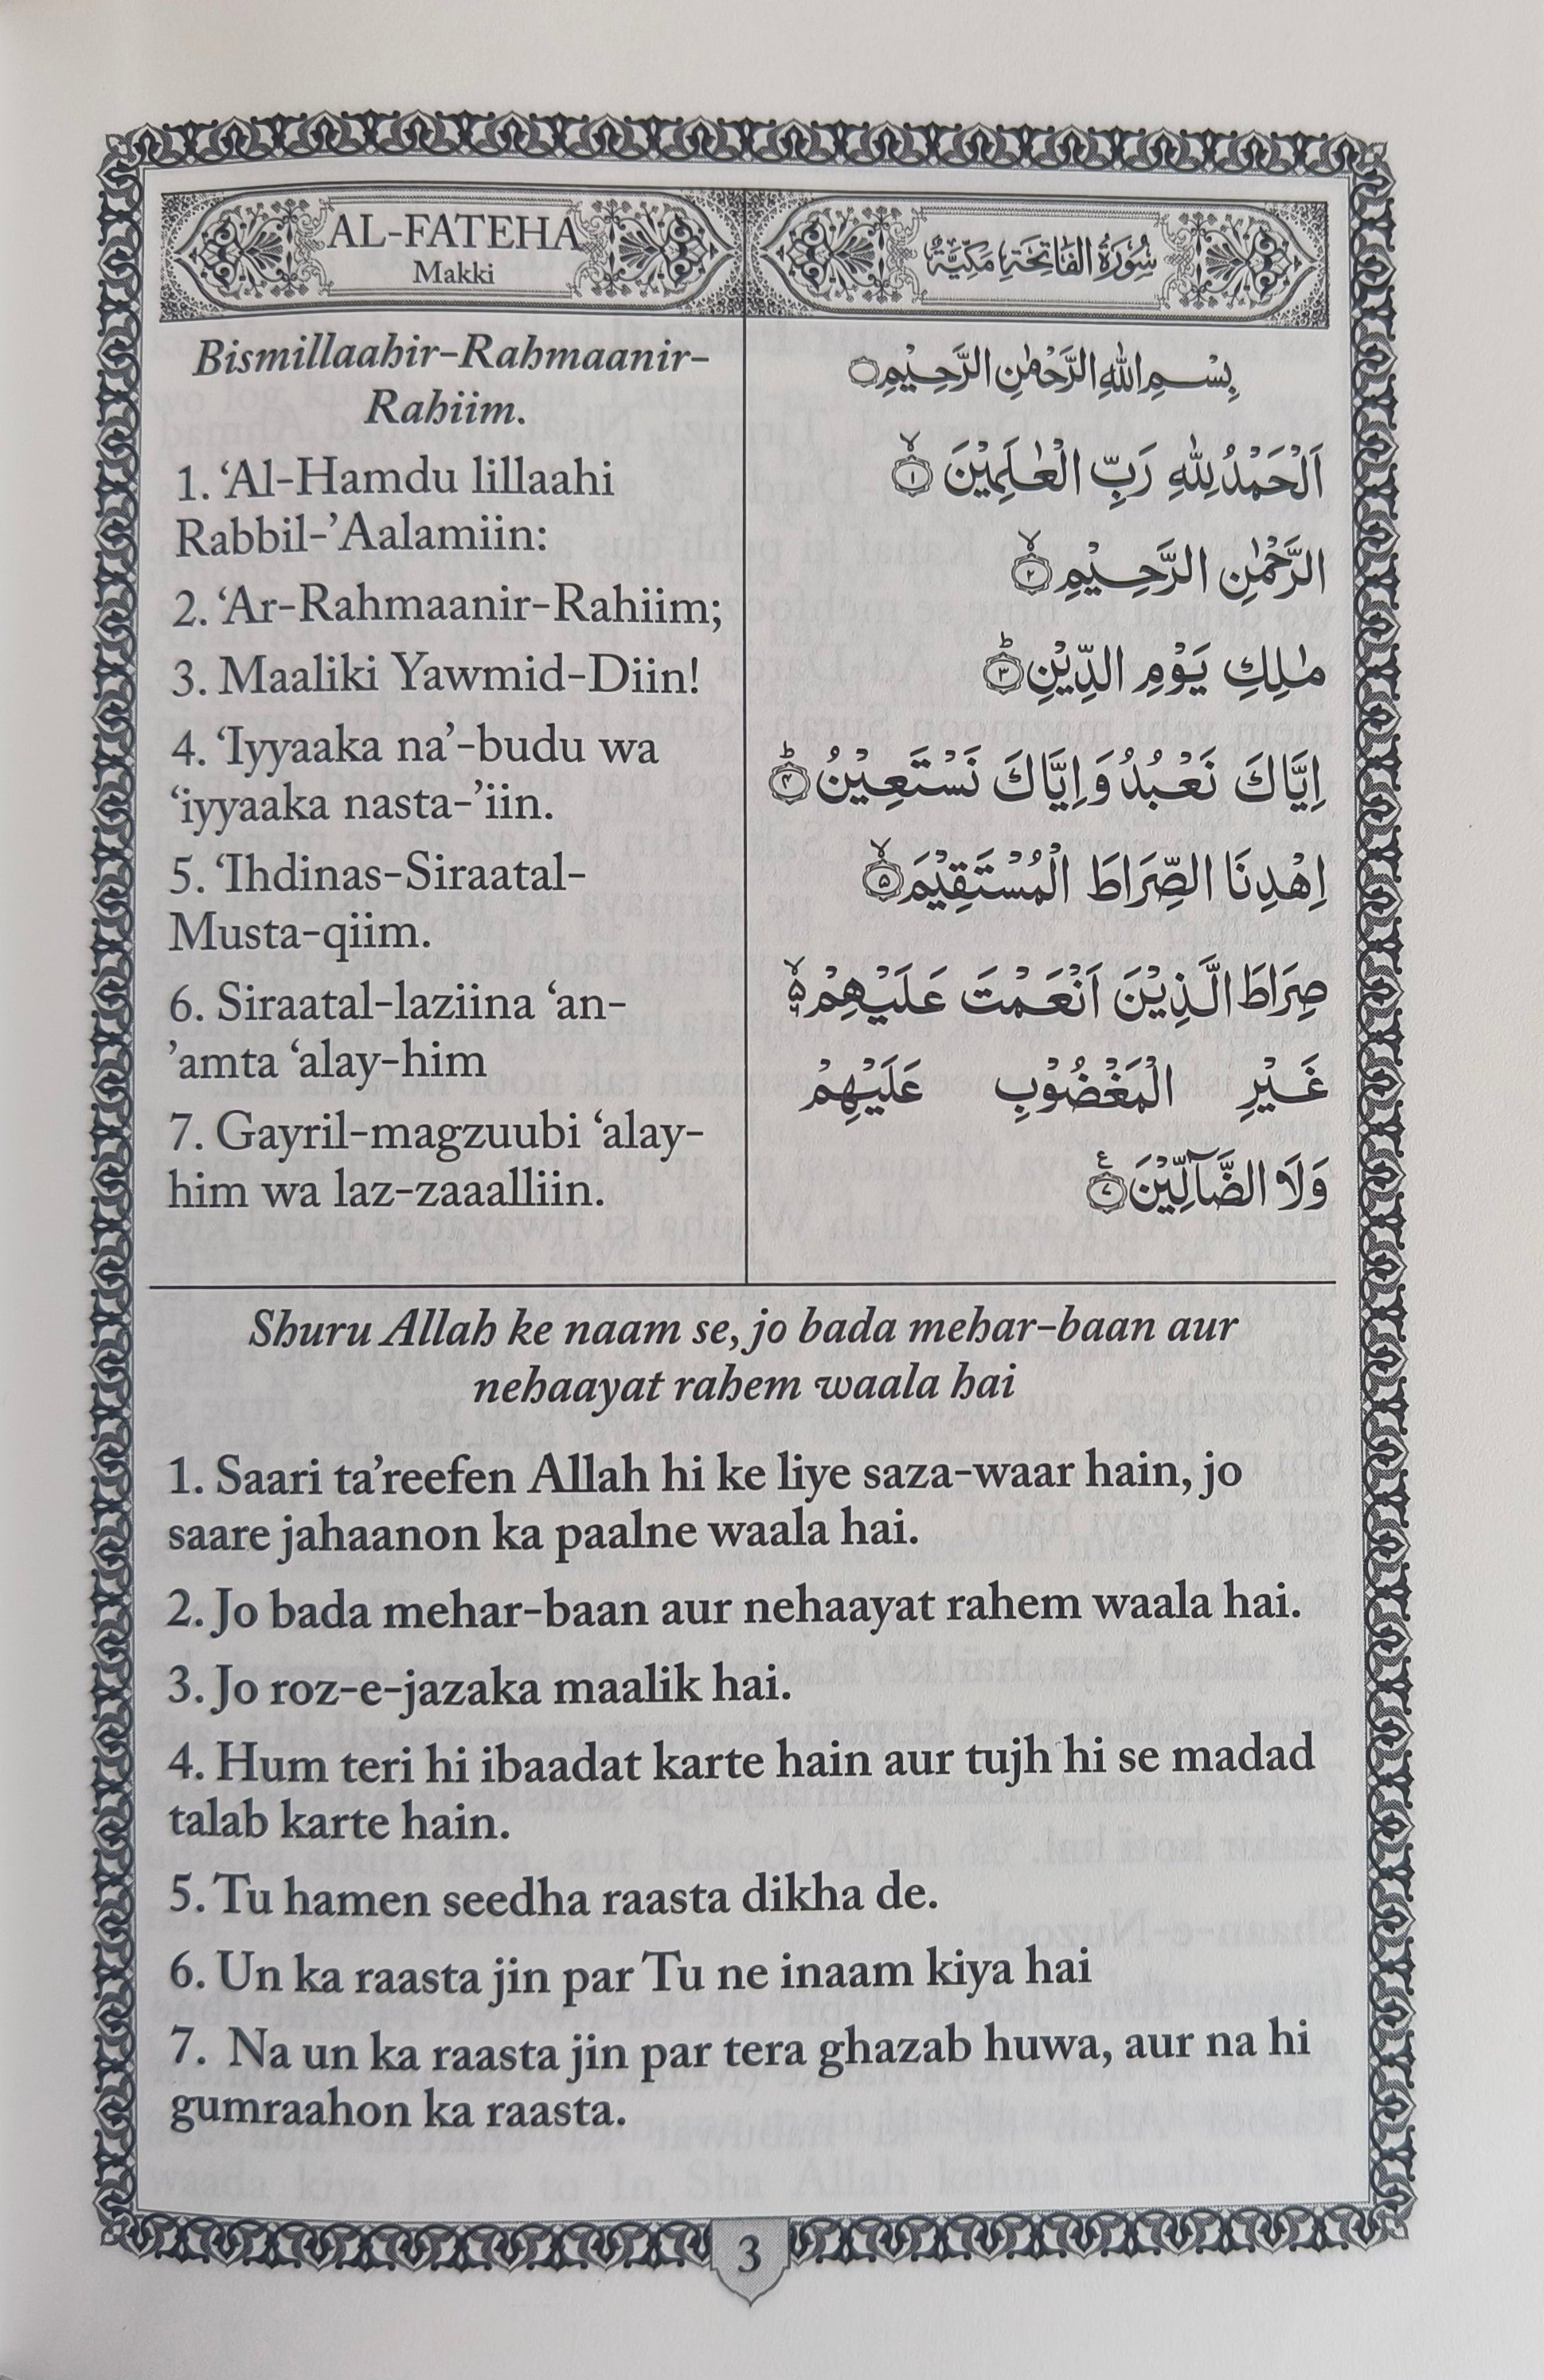 AL-FATEHA
Makki
سُوْرَةُ الْفَاتِحَةِ مَكِّيَّةٌ
Bismillaahir-Rahmaanir-
Rahiim.
1. ‘Al-Hamdu lillaahi
Rabbil-’Aalamiin:
2. ‘Ar-Rahmaanir-Rahiim;
3. Maaliki Yawmid-Diin!
4. ‘Iyyaaka na’-budu wa
‘iyyaaka nasta-’iin.
5. ‘Ihdinas-Siraatal-
Musta-qiim.
6. Siraatal-laziina ‘an-
’amta ‘alay-him
7. Gayril-magzuubi ‘alay-
him wa laz-zaaalliin.
بِسْمِ اللّٰهِ الرَّحْمٰنِ الرَّحِيْمِ۝
اَلْحَمْدُ لِلّٰهِ رَبِّ الْعٰلَمِيْنَ ۙ۝۱
الرَّحْمٰنِ الرَّحِيْمِ ۙ۝۲
مٰلِكِ يَوْمِ الدِّيْنِ ؕ۝۳
اِيَّاكَ نَعْبُدُ وَاِيَّاكَ نَسْتَعِيْنُ ؕ۝۴
اِهْدِنَا الصِّرَاطَ الْمُسْتَقِيْمَ ۙ۝۵
صِرَاطَ الَّذِيْنَ اَنْعَمْتَ عَلَيْهِمْ ۙ۵
غَيْرِ الْمَغْضُوْبِ عَلَيْهِمْ
وَلَا الضَّآلِّيْنَ ۝۷
Shuru Allah ke naam se, jo bada mehar-baan aur
nehaayat rahem waala hai
1. Saari ta’reefen Allah hi ke liye saza-waar hain, jo
saare jahaanon ka paalne waala hai.
2. Jo bada mehar-baan aur nehaayat rahem waala hai.
3. Jo roz-e-jazaka maalik hai.
4. Hum teri hi ibaadat karte hain aur tujh hi se madad
talab karte hain.
5. Tu hamen seedha raasta dikha de.
6. Un ka raasta jin par Tu ne inaam kiya hai
7. Na un ka raasta jin par tera ghazab huwa, aur na hi
gumraahon ka raasta.
3